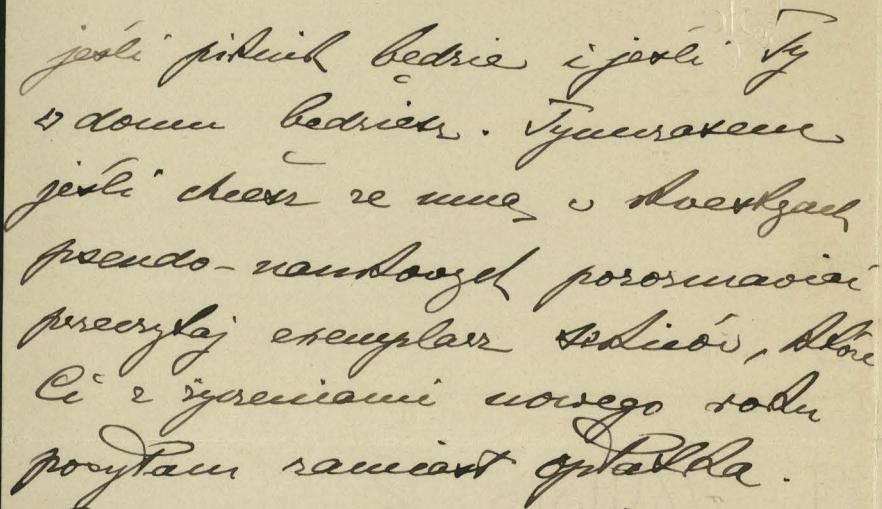 jeśli piknik będzie i jeśli Ty
w domu będziesz. Tymczasem
jeśli chcesz ze mną o kwestyach
pseudo-naukowych porozmawiać
przeczytaj exemplarz szkiców, które
Ci z życzeniami nowego roku
posyłam zamiast opłatka.